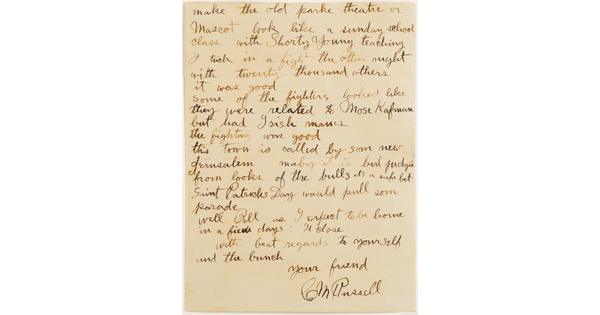 make the old parke theatre or
Mascot look like a sunday school
class with Shorty Young teaching
I took in a fight the other night
with twenty thousand others
it was good
some of the fighters looked like
they were related to Mose Kafman
but had Irish names
the fighting was good
this town is called by som new
Jerusalem maby it is but judgin
from looks of the bulls its a safe bet
Saint Patricks Day would pull som
parade
well Bill as I expect to be home
in a days Il close
with best regards to yourself
and the bunch
your friend
CM Russell